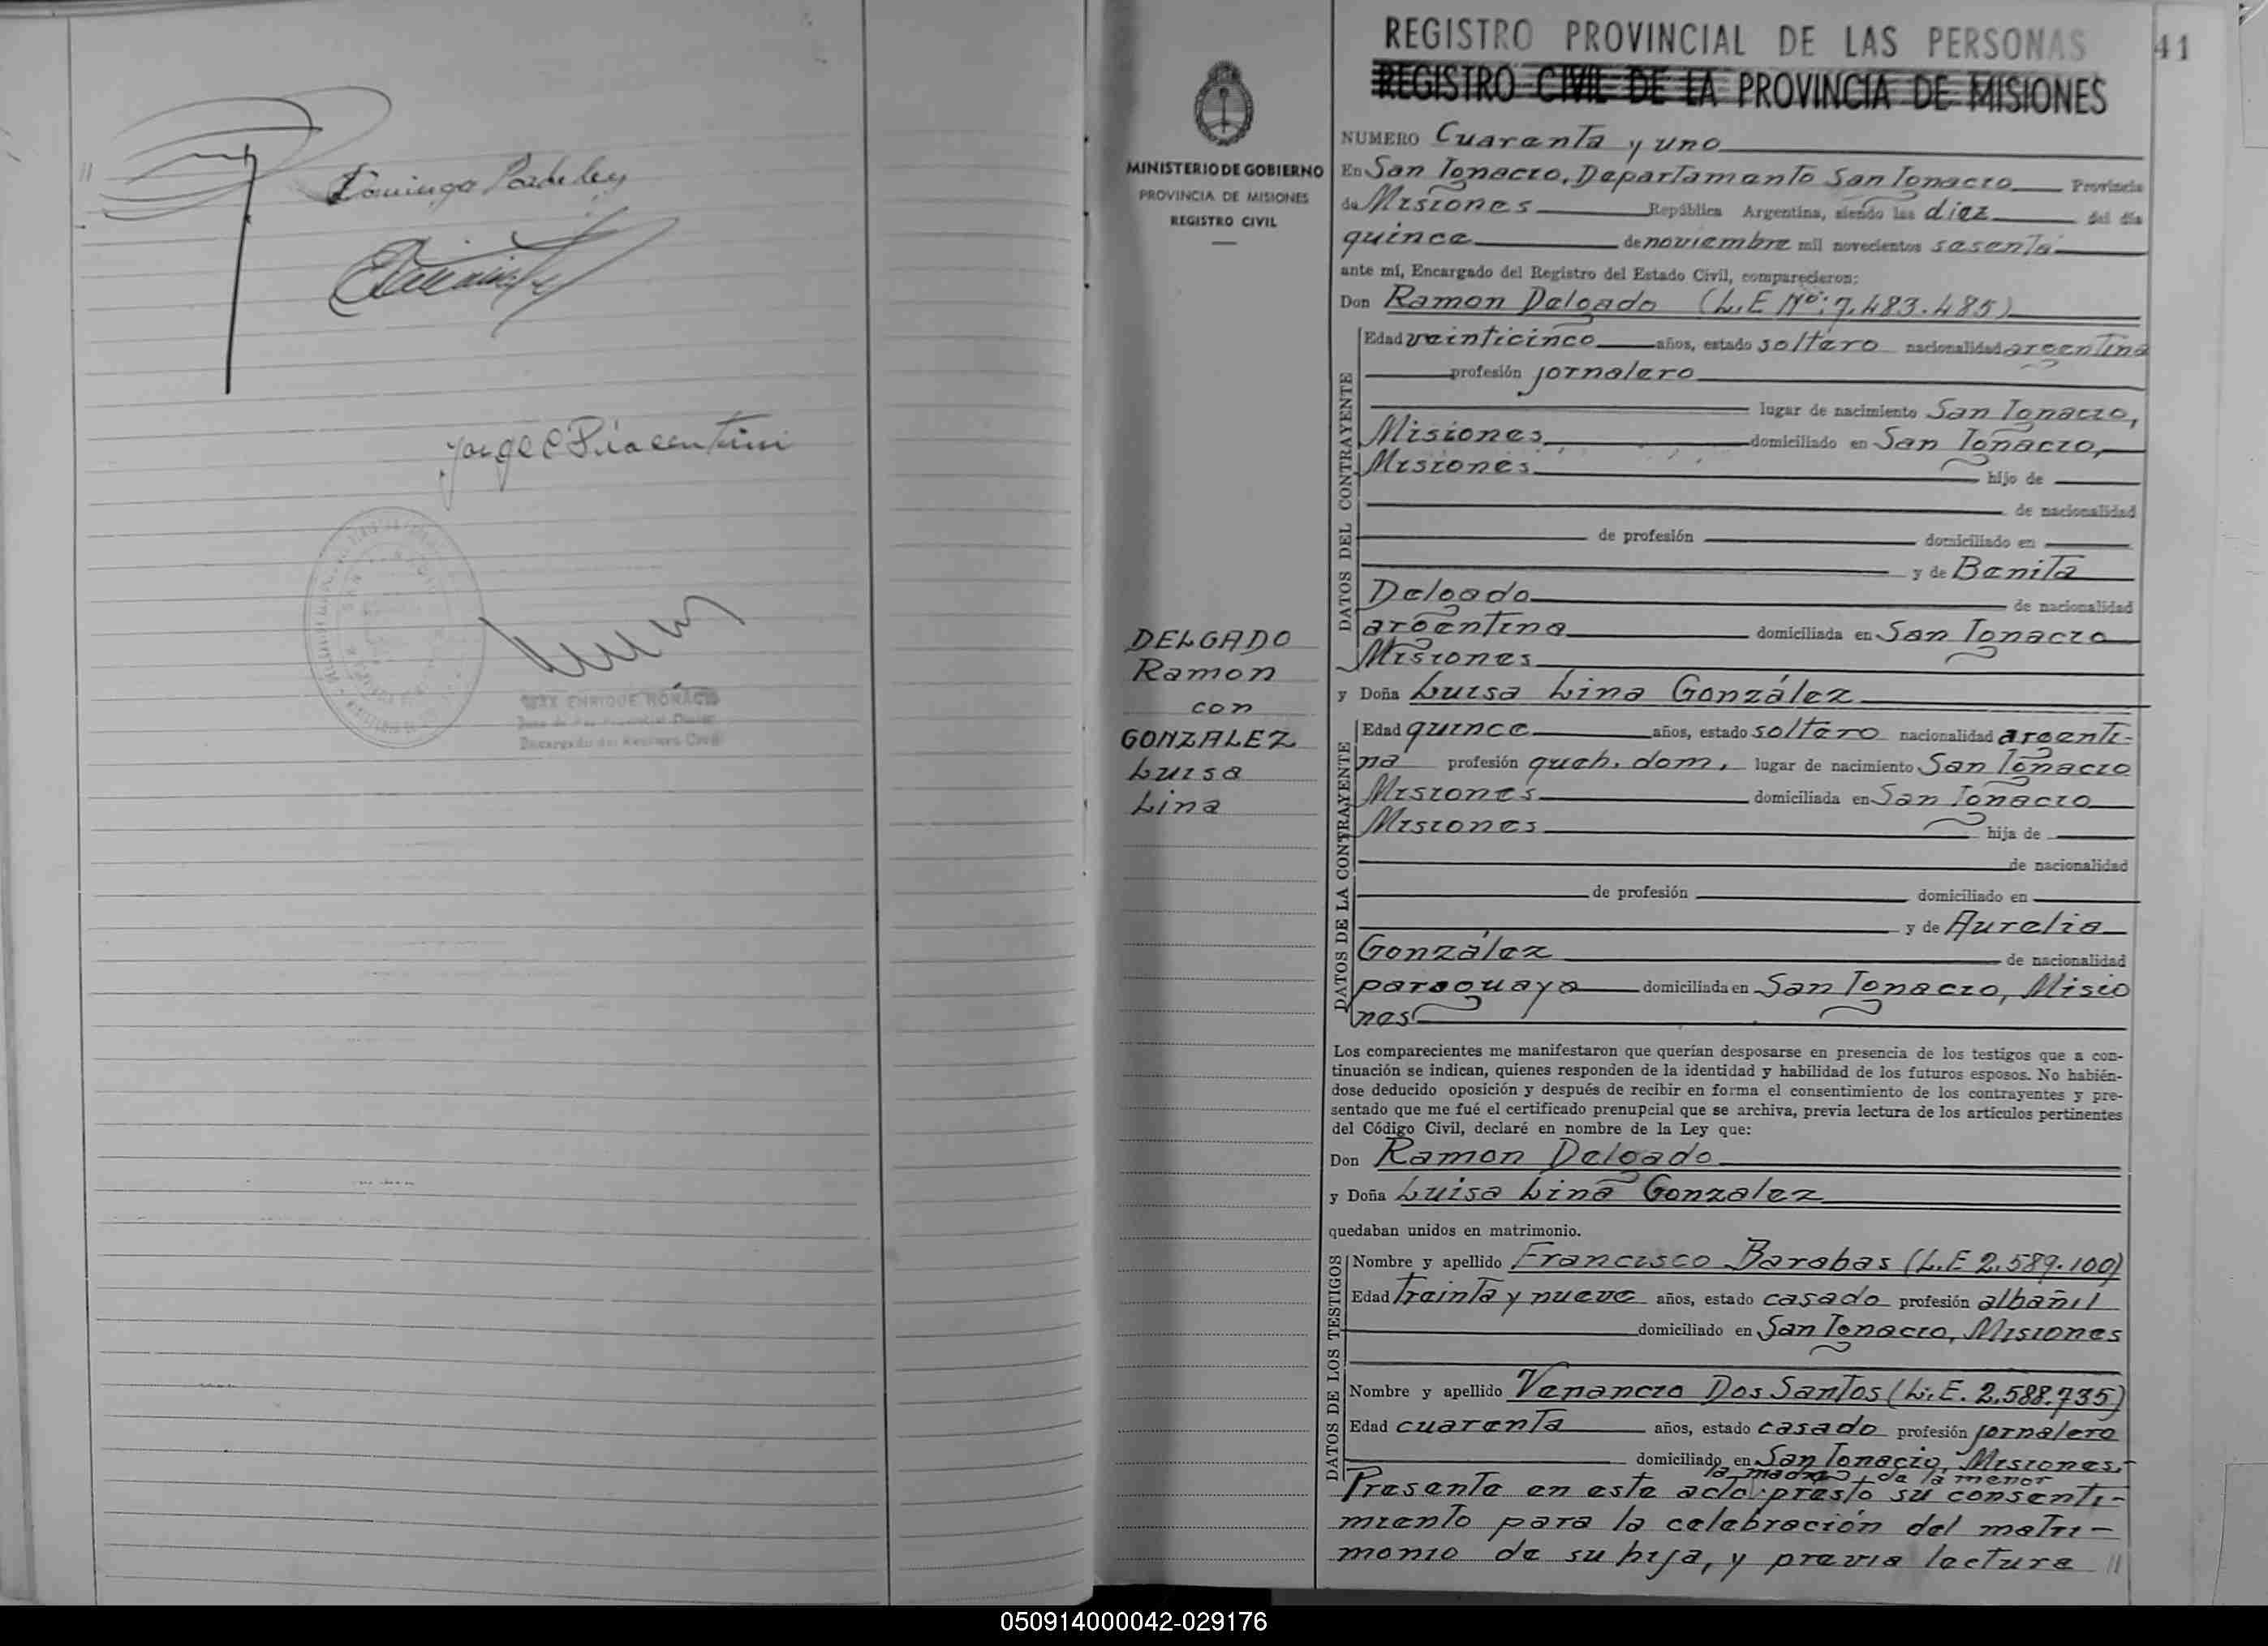 Jorge C Piacentini
ENRIQUE HORACIO
Encargado del Registro Civil
REGISTRO PROVINCIAL DE LAS PERSONAS
41
REGISTRO CIVIL DE LA PROVINCIA DE MISIONES
MINISTERIO DE GOBIERNO
PROVINCIA DE MISIONES
REGISTRO CIVIL
DELGADO
Ramon
con
GONZALEZ
Luisa
Lina
NUMERO Cuarenta y uno
En San Ignacio, Departamento San Ignacio Provincia
de Misiones República Argentina, siendo las diez del día
quince de noviembre mil novecientos sesenta
ante mí, Encargado del Registro del Estado Civil, comparecieron:
Don Ramon Delgado (L.E Nº: 7.483.485)
DATOS DEL CONTRAYENTE
Edad veinticinco años, estado soltero nacionalidad argentina
profesión jornalero
lugar de nacimiento San Ignacio,
Misiones domiciliado en San Ignacio,
Misiones hijo de
de nacionalidad
de profesión domiciliado en
y de Benita
Delgado de nacionalidad
argentina domiciliada en San Ignacio
Misiones
y Doña Luisa Lina González
DATOS DE LA CONTRAYENTE
Edad quince años, estado soltero nacionalidad argenti-
na profesión queh. dom, lugar de nacimiento San Ignacio
Misiones domiciliada en San Ignacio
Misiones hija de
de nacionalidad
de profesión domiciliado en
y de Aurelia
González de nacionalidad
paraguaya domiciliada en San Ignacio, Misio
nes
Los comparecientes me manifestaron que querían desposarse en presencia de los testigos que a con-
tinuación se indican, quienes responden de la identidad y habilidad de los futuros esposos. No habién-
dose deducido oposición y después de recibir en forma el consentimiento de los contrayentes y pre-
sentado que me fué el certificado prenupcial que se archiva, previa lectura de los artículos pertinentes
del Código Civil, declaré en nombre de la Ley que:
Don Ramon Delgado
y Doña Luisa Lina Gonzalez
quedaban unidos en matrimonio.
DATOS DE LOS TESTIGOS
Nombre y apellido Francisco Barabas (L.E 2.589.100)
Edad treinta y nueve años, estado casado profesión albañil
domiciliado en San Ignacio, Misiones
Nombre y apellido Venancio Dos Santos (L.E. 2.588.735)
Edad cuarenta años, estado casado profesión jornalero
domiciliado en San Ignacio, Misiones.
la madre de la menor
Presente en este acto prestó su consenti-
miento para la celebración del matri-
monio de su hija, y previa lectura //
050914000042-029176